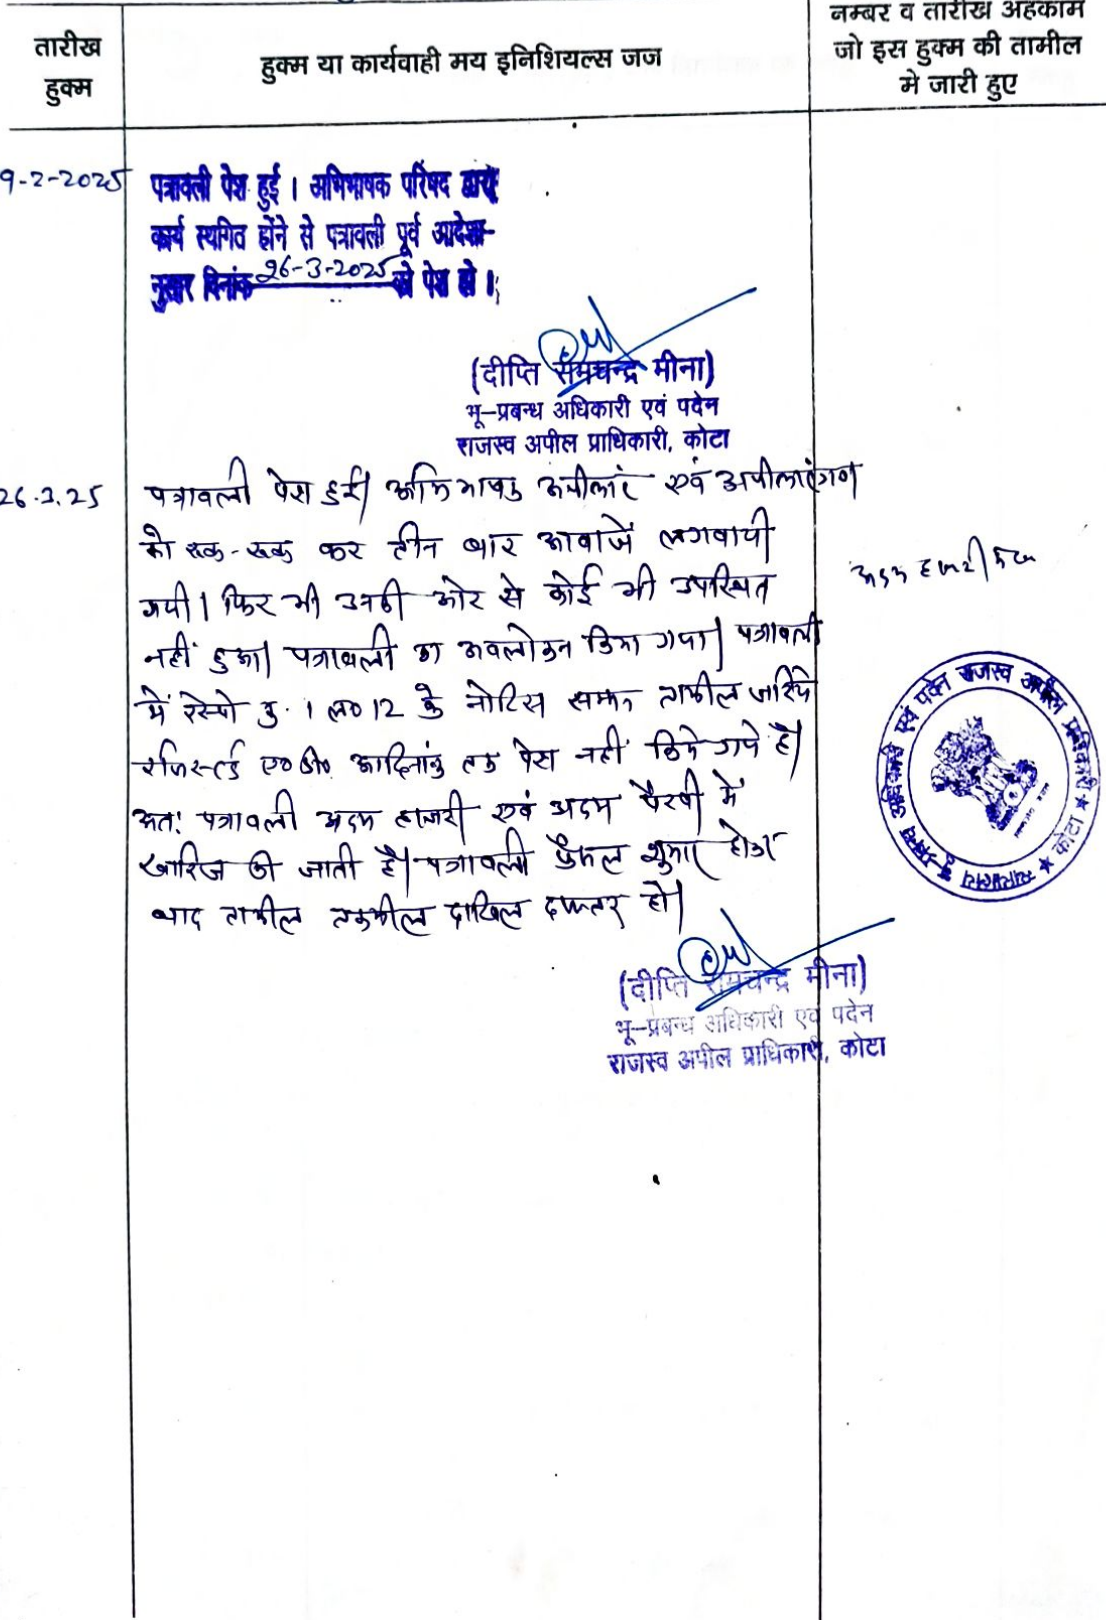 तारीख
हुक्म
हुक्म या कार्यवाही मय इनिशियल्स जज
नम्बर व तारीख अहकाम
जो इस हुक्म की तामील
मे जारी हुए
9-2-2025
पत्रावली पेश हुई । अभिभाषक परिषद द्वारा
कार्य स्थगित होंने से पत्रावली पूर्व आदेशा-
नुसार दिनांक 26-3-2025 को पेश हो ।
(दीप्ति रामचन्द्र मीना)
भू-प्रबन्ध अधिकारी एवं पदेन
राजस्व अपील प्राधिकारी, कोटा
26.3.25
पत्रावली पेश हुई। अभिभाषक अपीलांट एवं अपीलांटगण
को रुक-रुक कर तीन बार आवाजें लगवायी
गयी। फिर भी उनकी ओर से कोई भी उपस्थित
नहीं हुआ। पत्रावली का अवलोकन किया गया। पत्रावली
में रेस्पो क्र. 1 ल० 12 के नोटिस सम्मन तामील जरिये
रजिस्टर्ड ए०डी० आदिनांक तक पेश नहीं किये गये है।
अतः पत्रावली अदम हाजरी एवं अदम पैरवी में
खारिज की जाती है। पत्रावली फैसल शुमार होकर
बाद तामील तकमील दाखिल दफ्तर हो।
अदम हाजरी
न्यायालय भू प्रबन्ध अधिकारी एवं पदेन राजस्व अपील प्राधिकारी ★ कोटा ★
(दीप्ति रामचन्द्र मीना)
भू-प्रबन्ध अधिकारी एवं पदेन
राजस्व अपील प्राधिकारी, कोटा